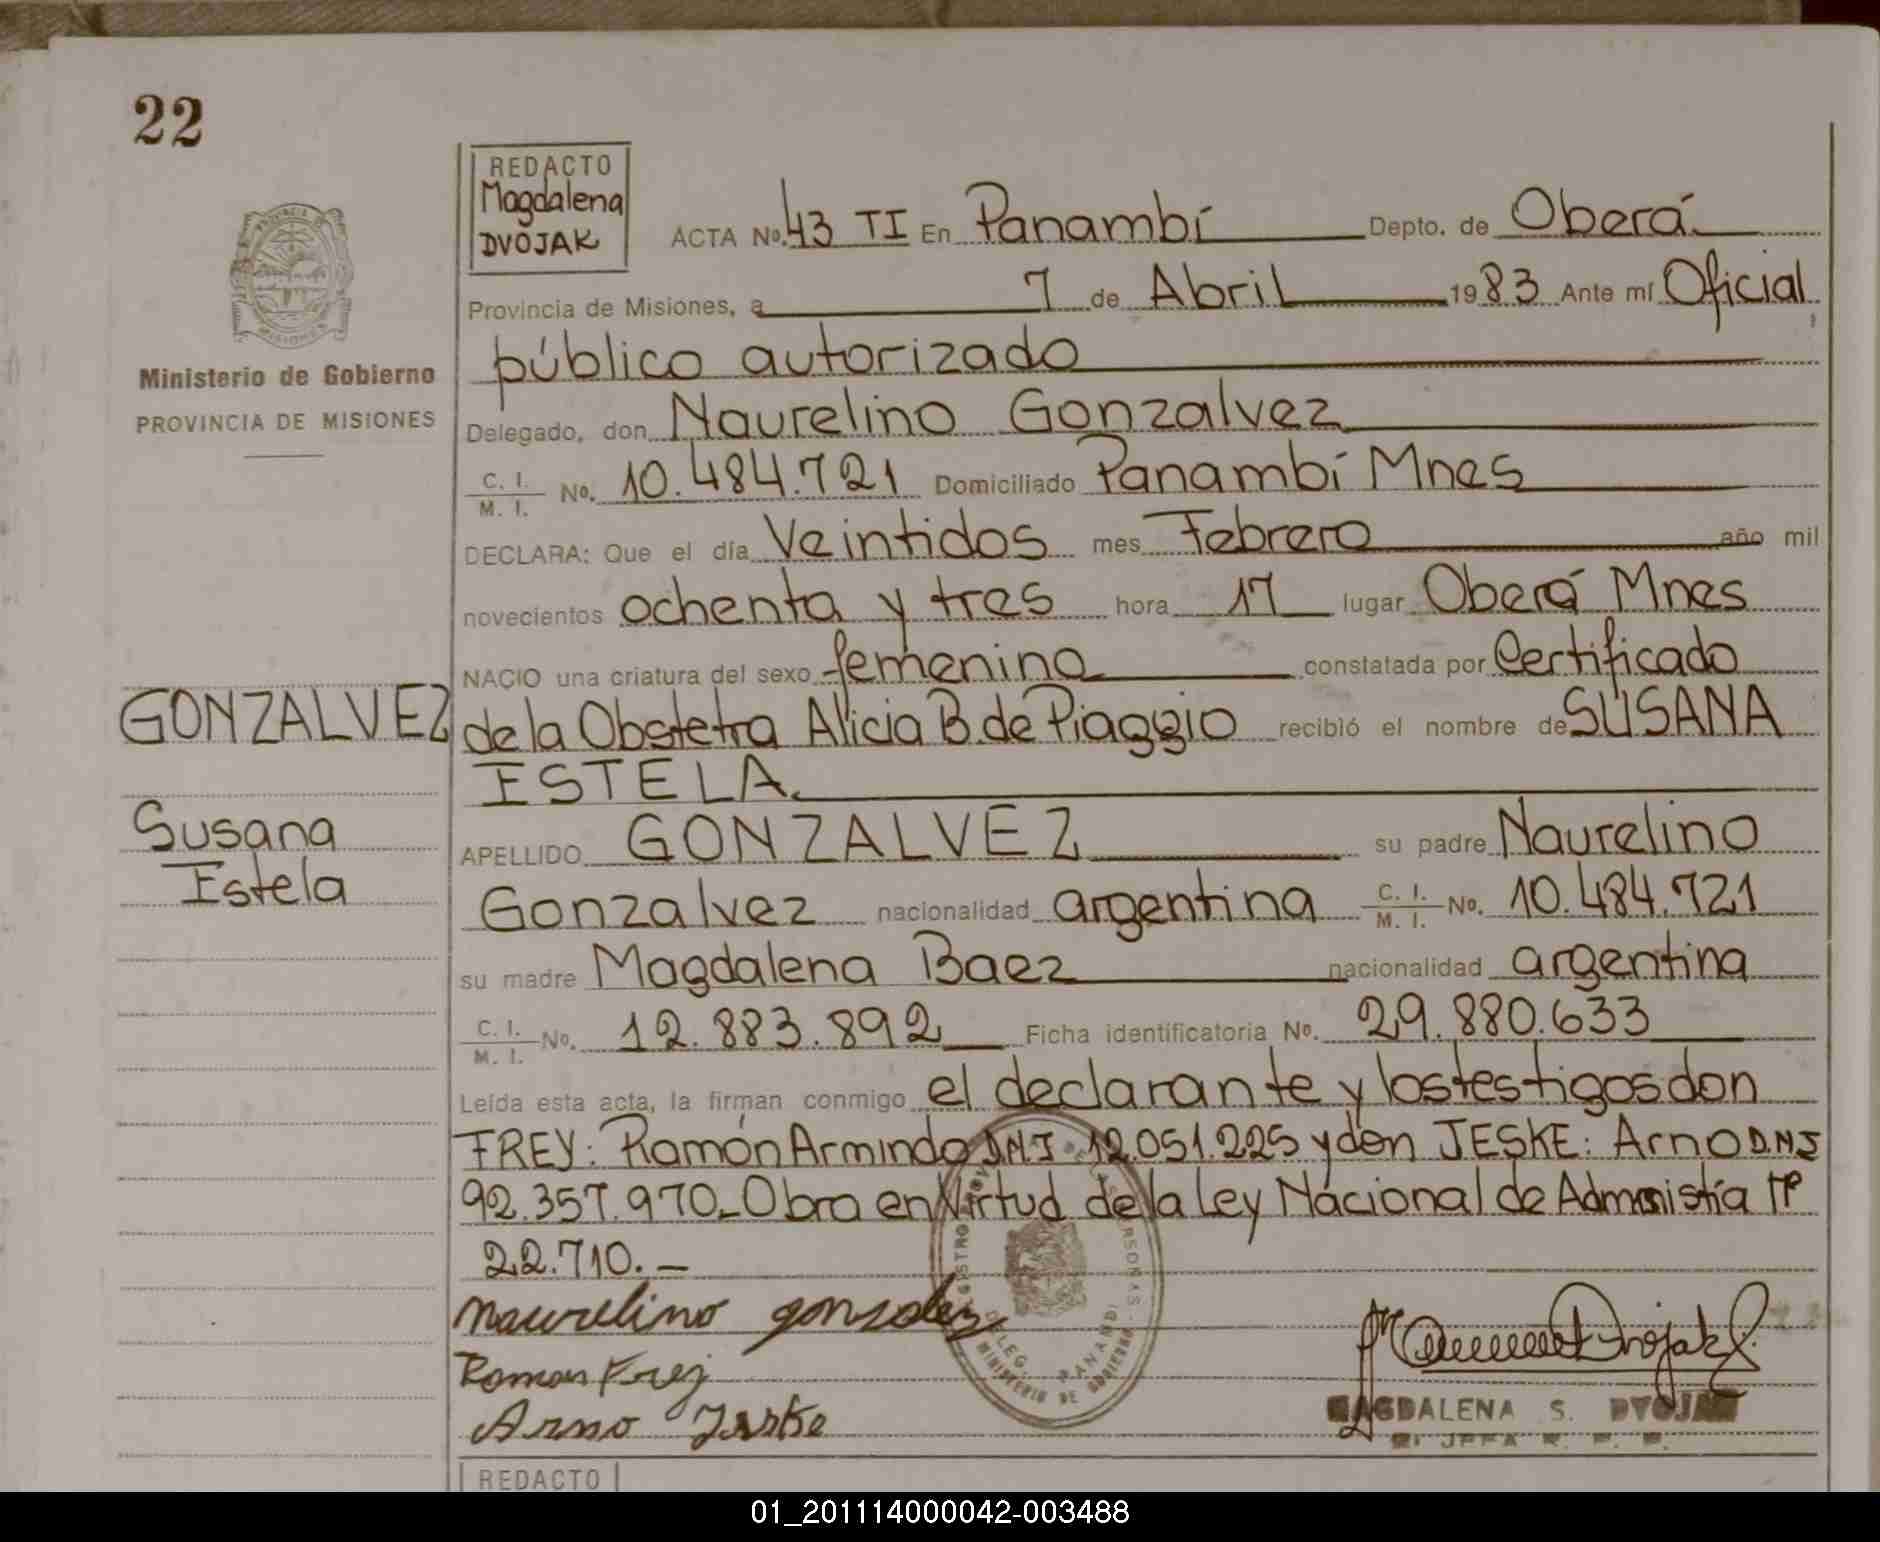 22
REDACTO
Magdalena
DVOJAK
ACTA No. 43 TI En Panambí Depto. de Oberá
Provincia de Misiones, a 7 de Abril 1983 Ante mí Oficial
público autorizado
Ministerio de Gobierno
PROVINCIA DE MISIONES
Delegado, don Naurelino Gonzalvez
C. I. / M. I. No. 10.484.721 Domiciliado Panambí Mnes
DECLARA: Que el día Veintidos mes Febrero año mil
novecientos ochenta y tres hora 17 lugar Oberá Mnes
NACIO una criatura del sexo femenino constatada por Certificado
GONZALVEZ
de la Obstetra Alicia B. de Piaggio recibió el nombre de SUSANA
ESTELA.
Susana
Estela
APELLIDO GONZALVEZ su padre Naurelino
Gonzalvez nacionalidad argentina C. I. / M. I. No. 10.484.721
su madre Magdalena Baez nacionalidad argentina
C. I. / M. I. No. 12.883.892 Ficha identificatoria No. 29.880.633
Leída esta acta, la firman conmigo el declarante y los testigos don
FREY: Ramón Armindo D.N.I 12.051.225 y don JESKE: Arno D.N.I
92.357.970_ Obra en Virtud de la Ley Nacional de Admnistía Nº
22.710. _
Naurelino gonzalez
Roman Frej
Arno Jeske
DELEG. PANAMBI
MINISTERIO DE GOBIERNO
MAGDALENA S. DVOJAK
REDACTO
01_201114000042-003488